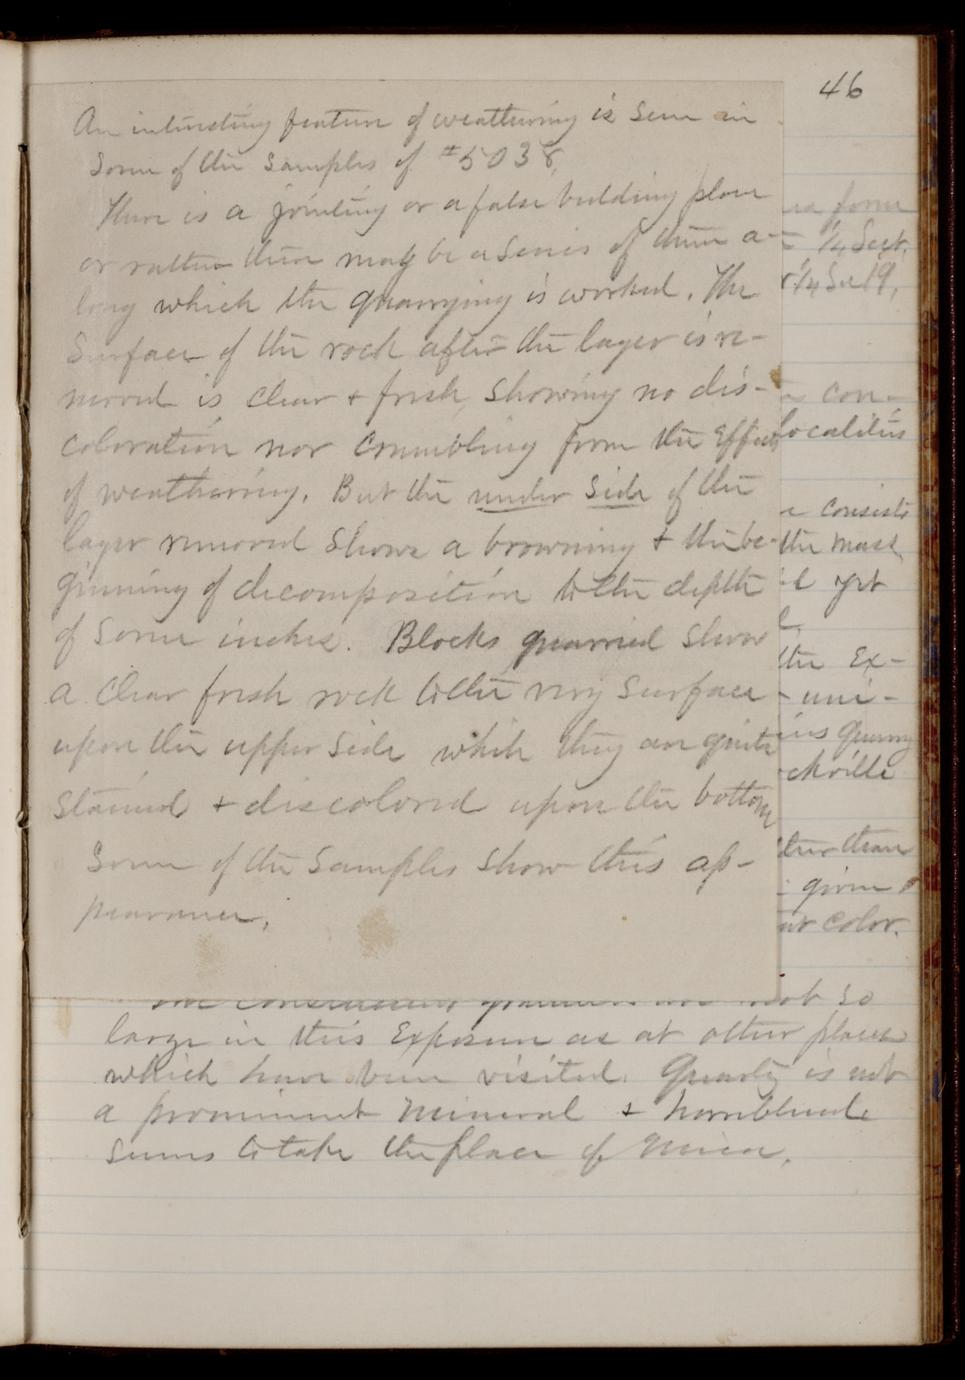 46
An interesting feature of weathering is seen in
some of the samples of #5038.
There is a jointing or a false bedding plane
or rather there may be a series of them a-
long which the quarrying is worked. The
surface of the rock after the layer is re-
moved is clear & fresh, showing no dis-
coloration nor crumbling from the effects
of weathering. But the under side of the
layer removed shows a browning & the be-
ginning of decomposition to the depth
of some inches. Blocks quarried show
a clear fresh rock to the very surface
upon the upper side while they are quite
stained & discolored upon the bottom
Some of the samples show this ap-
pearance.
form
1/4 Sect.
1/4 Sec 19,
con-
localities
consists
the mass
yet
the Ex-
- uni-
quarry
ckville
than
given
color.
not so
large in this Exposure as at other places
which have been visited. Quartz is not
a prominent mineral & hornblende
seems to take the place of mica.